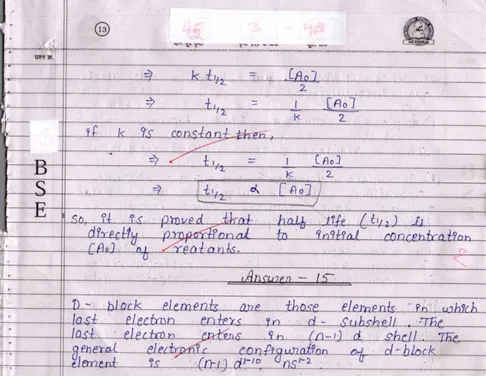 13
45 - 3 - 48
प्रश्न क्र.
⇒ k t1/2 = [A0]/2
⇒ t1/2 = 1/k [A0]/2
if k is constant then,
⇒ t1/2 = 1/k [A0]/2
⇒ t1/2 α [A0]
So, it is proved that half life (t1/2) is
directly proportional to initial concentration
[A0] of reatants.
Answer - 15
D- block elements are those elements in which
last electron enters in d- subshell. The
last electron enters in (n-1) d shell. The
general electronic configuration of d-block
element is (n-1) d1-10 ns1-2
B
S
E